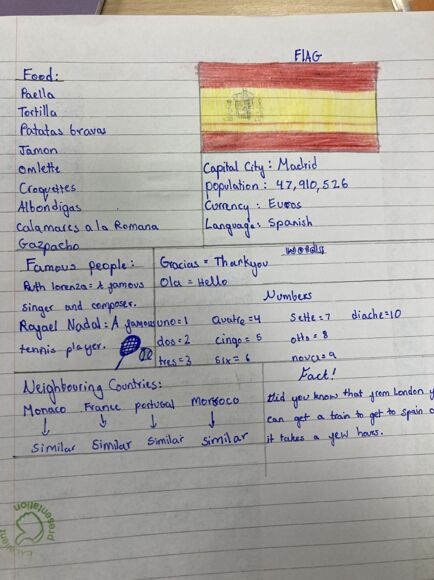 FlAG
Food:
Paella
Tortilla
Patatas bravas
Jamon
Omlette
Croquettes
Albondigas
Calamares a la Romana
Gazpacho
Capital City : Madrid
population : 47,910,526
Currency : Euros
Language: Spanish
Words
Gracias = Thankyou
Ola = Hello
Numbers
uno=1 quatre=4 Sette=7 diache=10
dos=2 cinqo=5 otto=8
tres=3 six=6 nova=9
Famous people:
Ruth lorenza= A famous
singer and composer.
Rafael Nadal: A famous
tennis player.
Neighbouring Countries:
Monaco France portugal Morroco
Similar Similar Similar Similar
Fact!
Did you know that from London y
can get a train to get to spain
it takes a few hours.
Excellent
Presentation